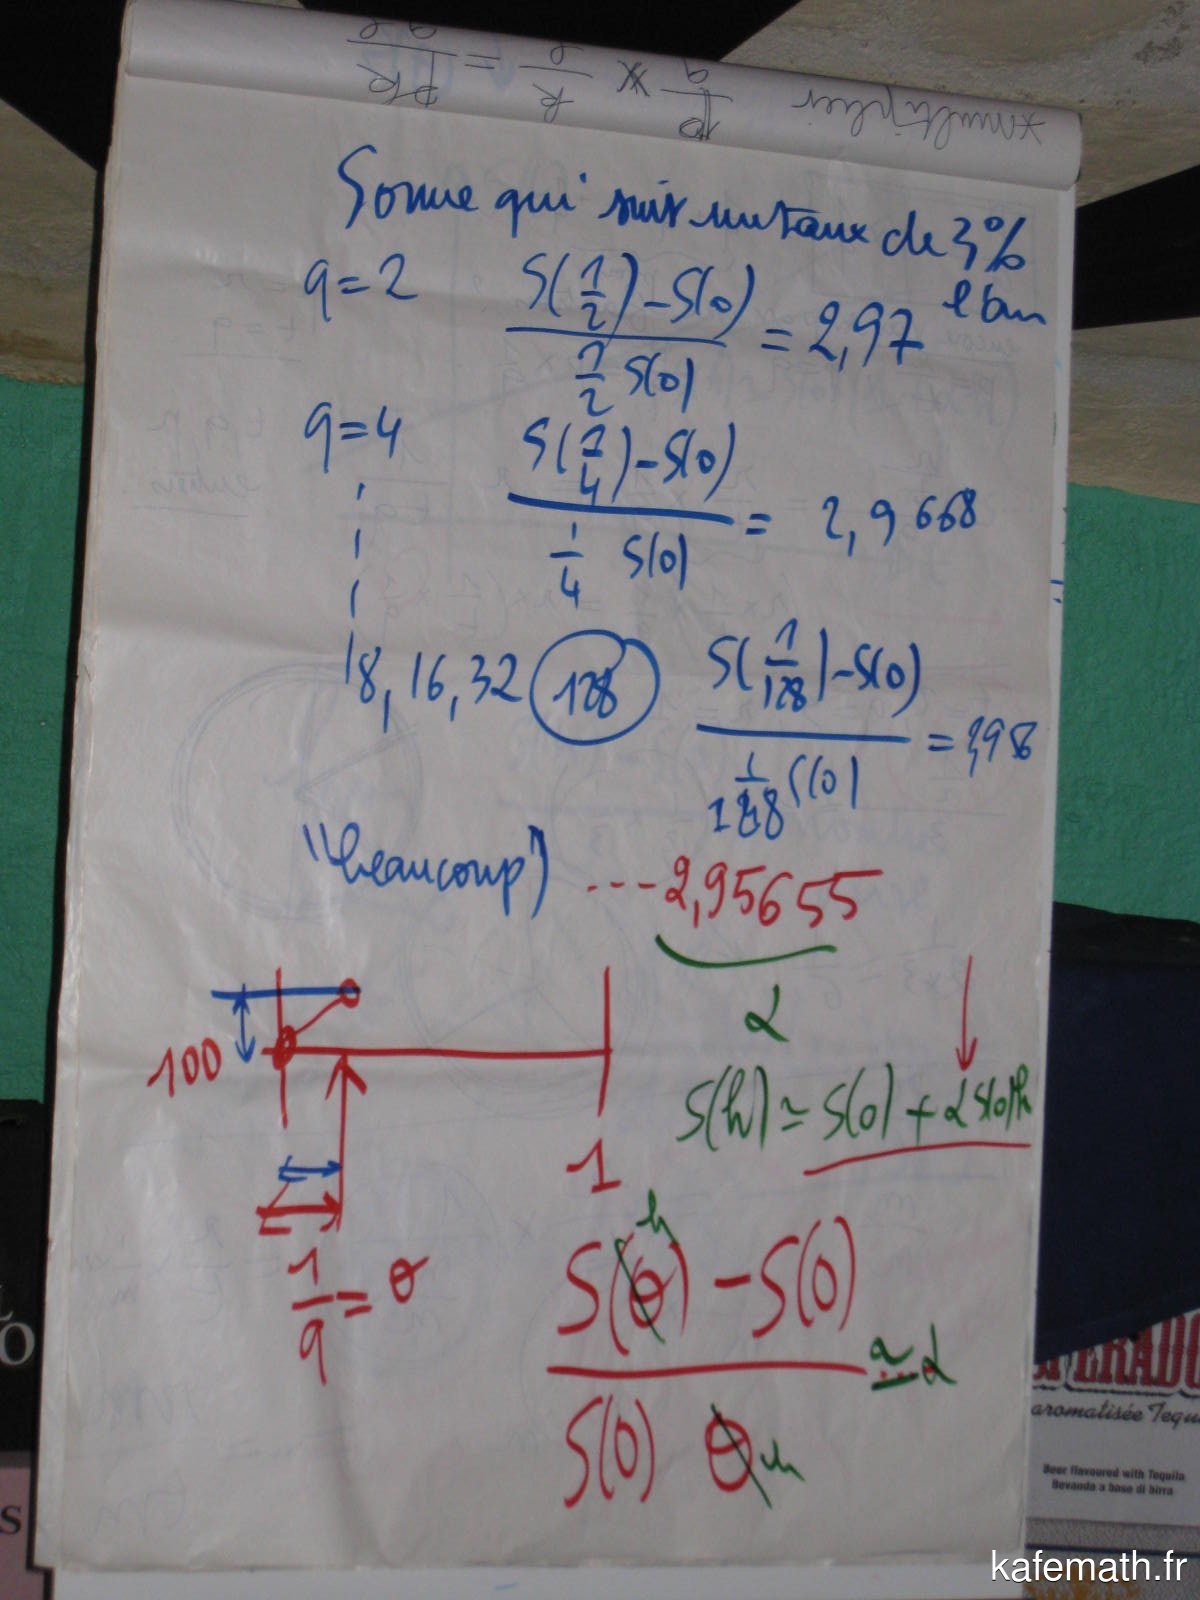 *multiplier p/q × r/s = pr/qs
Somme qui suit un taux de 3%
l'an
q=2 (S(1/2)-S(0))/(1/2 S(0)) = 2,97
q=4 (S(1/4)-S(0))/(1/4 S(0)) = 2,9668
8, 16, 32 128 (S(1/128)-S(0))/(1/128 S(0)) =
"beaucoup" ---2,95655
α
100
S(h) ≃ S(0) + αS(0)h
1
1/q = θ
(S(θ) h - S(0))/(S(0) θ h) ≃ α
PERADO
aromatisée Tequ
Beer flavoured with Tequila
Bevanda a base di birra
O
S
kafemath.fr